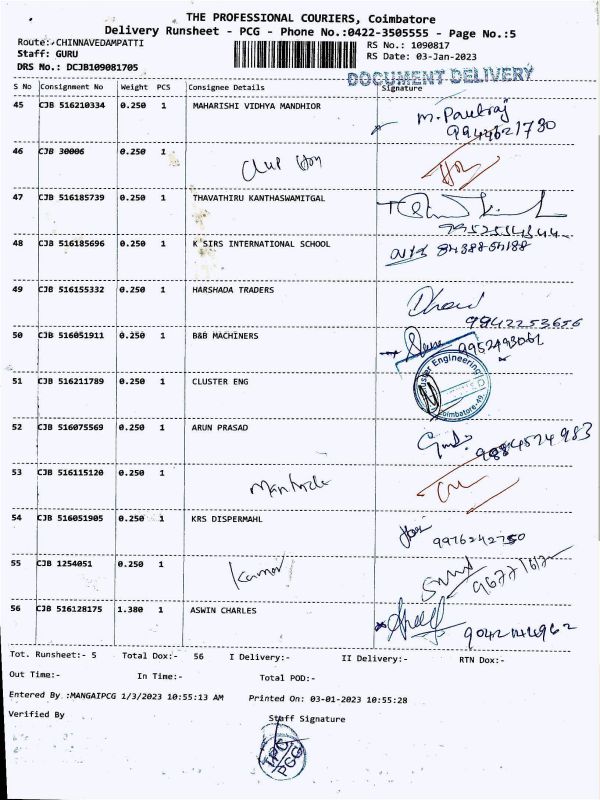 THE PROFESSIONAL COURIERS, Coimbatore
Delivery Runsheet - PCG - Phone No.:0422-3505555 - Page No.:5
Route: CHINNAVEDAMPATTI
Staff: GURU
DRS No.: DCJB109081705
RS No.: 1090817
RS Date: 03-Jan-2023
DOCUMENT DELIVERY
S No Consignment No Weight PCS Consignee Details Signature
45 CJB 516210334 0.250 1 MAHARISHI VIDHYA MANDHIOR M. Paulraj
9944621730
46 CJB 30006 0.250 1
47 CJB 516185739 0.250 1 THAVATHIRU KANTHASWAMITGAL
48 CJB 516185696 0.250 1 K SIRS INTERNATIONAL SCHOOL
49 CJB 516155332 0.250 1 HARSHADA TRADERS
9942253656
50 CJB 516051911 0.250 1 B&B MACHINERS 9952493061
51 CJB 516211789 0.250 1 CLUSTER ENG
Cluster Engineering
Coimbatore-49.
52 CJB 516075569 0.250 1 ARUN PRASAD
53 CJB 516115120 0.250 1
54 CJB 516051905 0.250 1 KRS DISPERMAHL
9976242750
55 CJB 1254051 0.250 1
56 CJB 516128175 1.380 1 ASWIN CHARLES
Tot. Runsheet:- 5 Total Dox:- 56 I Delivery:- II Delivery:- RTN Dox:-
Out Time:- In Time:- Total POD:-
Entered By :MANGAIPCG 1/3/2023 10:55:13 AM Printed On: 03-01-2023 10:55:28
Verified By Staff Signature
PCG